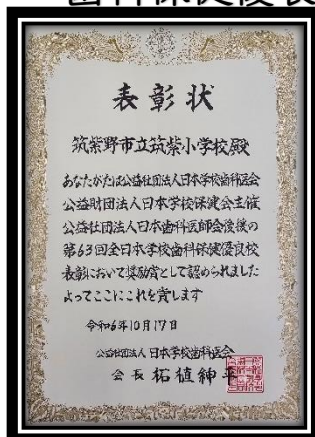 歯科保健優良
表彰状
筑紫野市立筑紫小学校殿
あなたがたは公益社団法人日本学校歯科医会
公益財団法人日本学校保健会主催
公益社団法人日本歯科医師会後援の
第63回全日本学校歯科保健優良校
表彰において奨励賞として認められました
よってここにこれを賞します
令和6年10月17日
公益社団法人 日本学校歯科医会
会長 柘植紳平